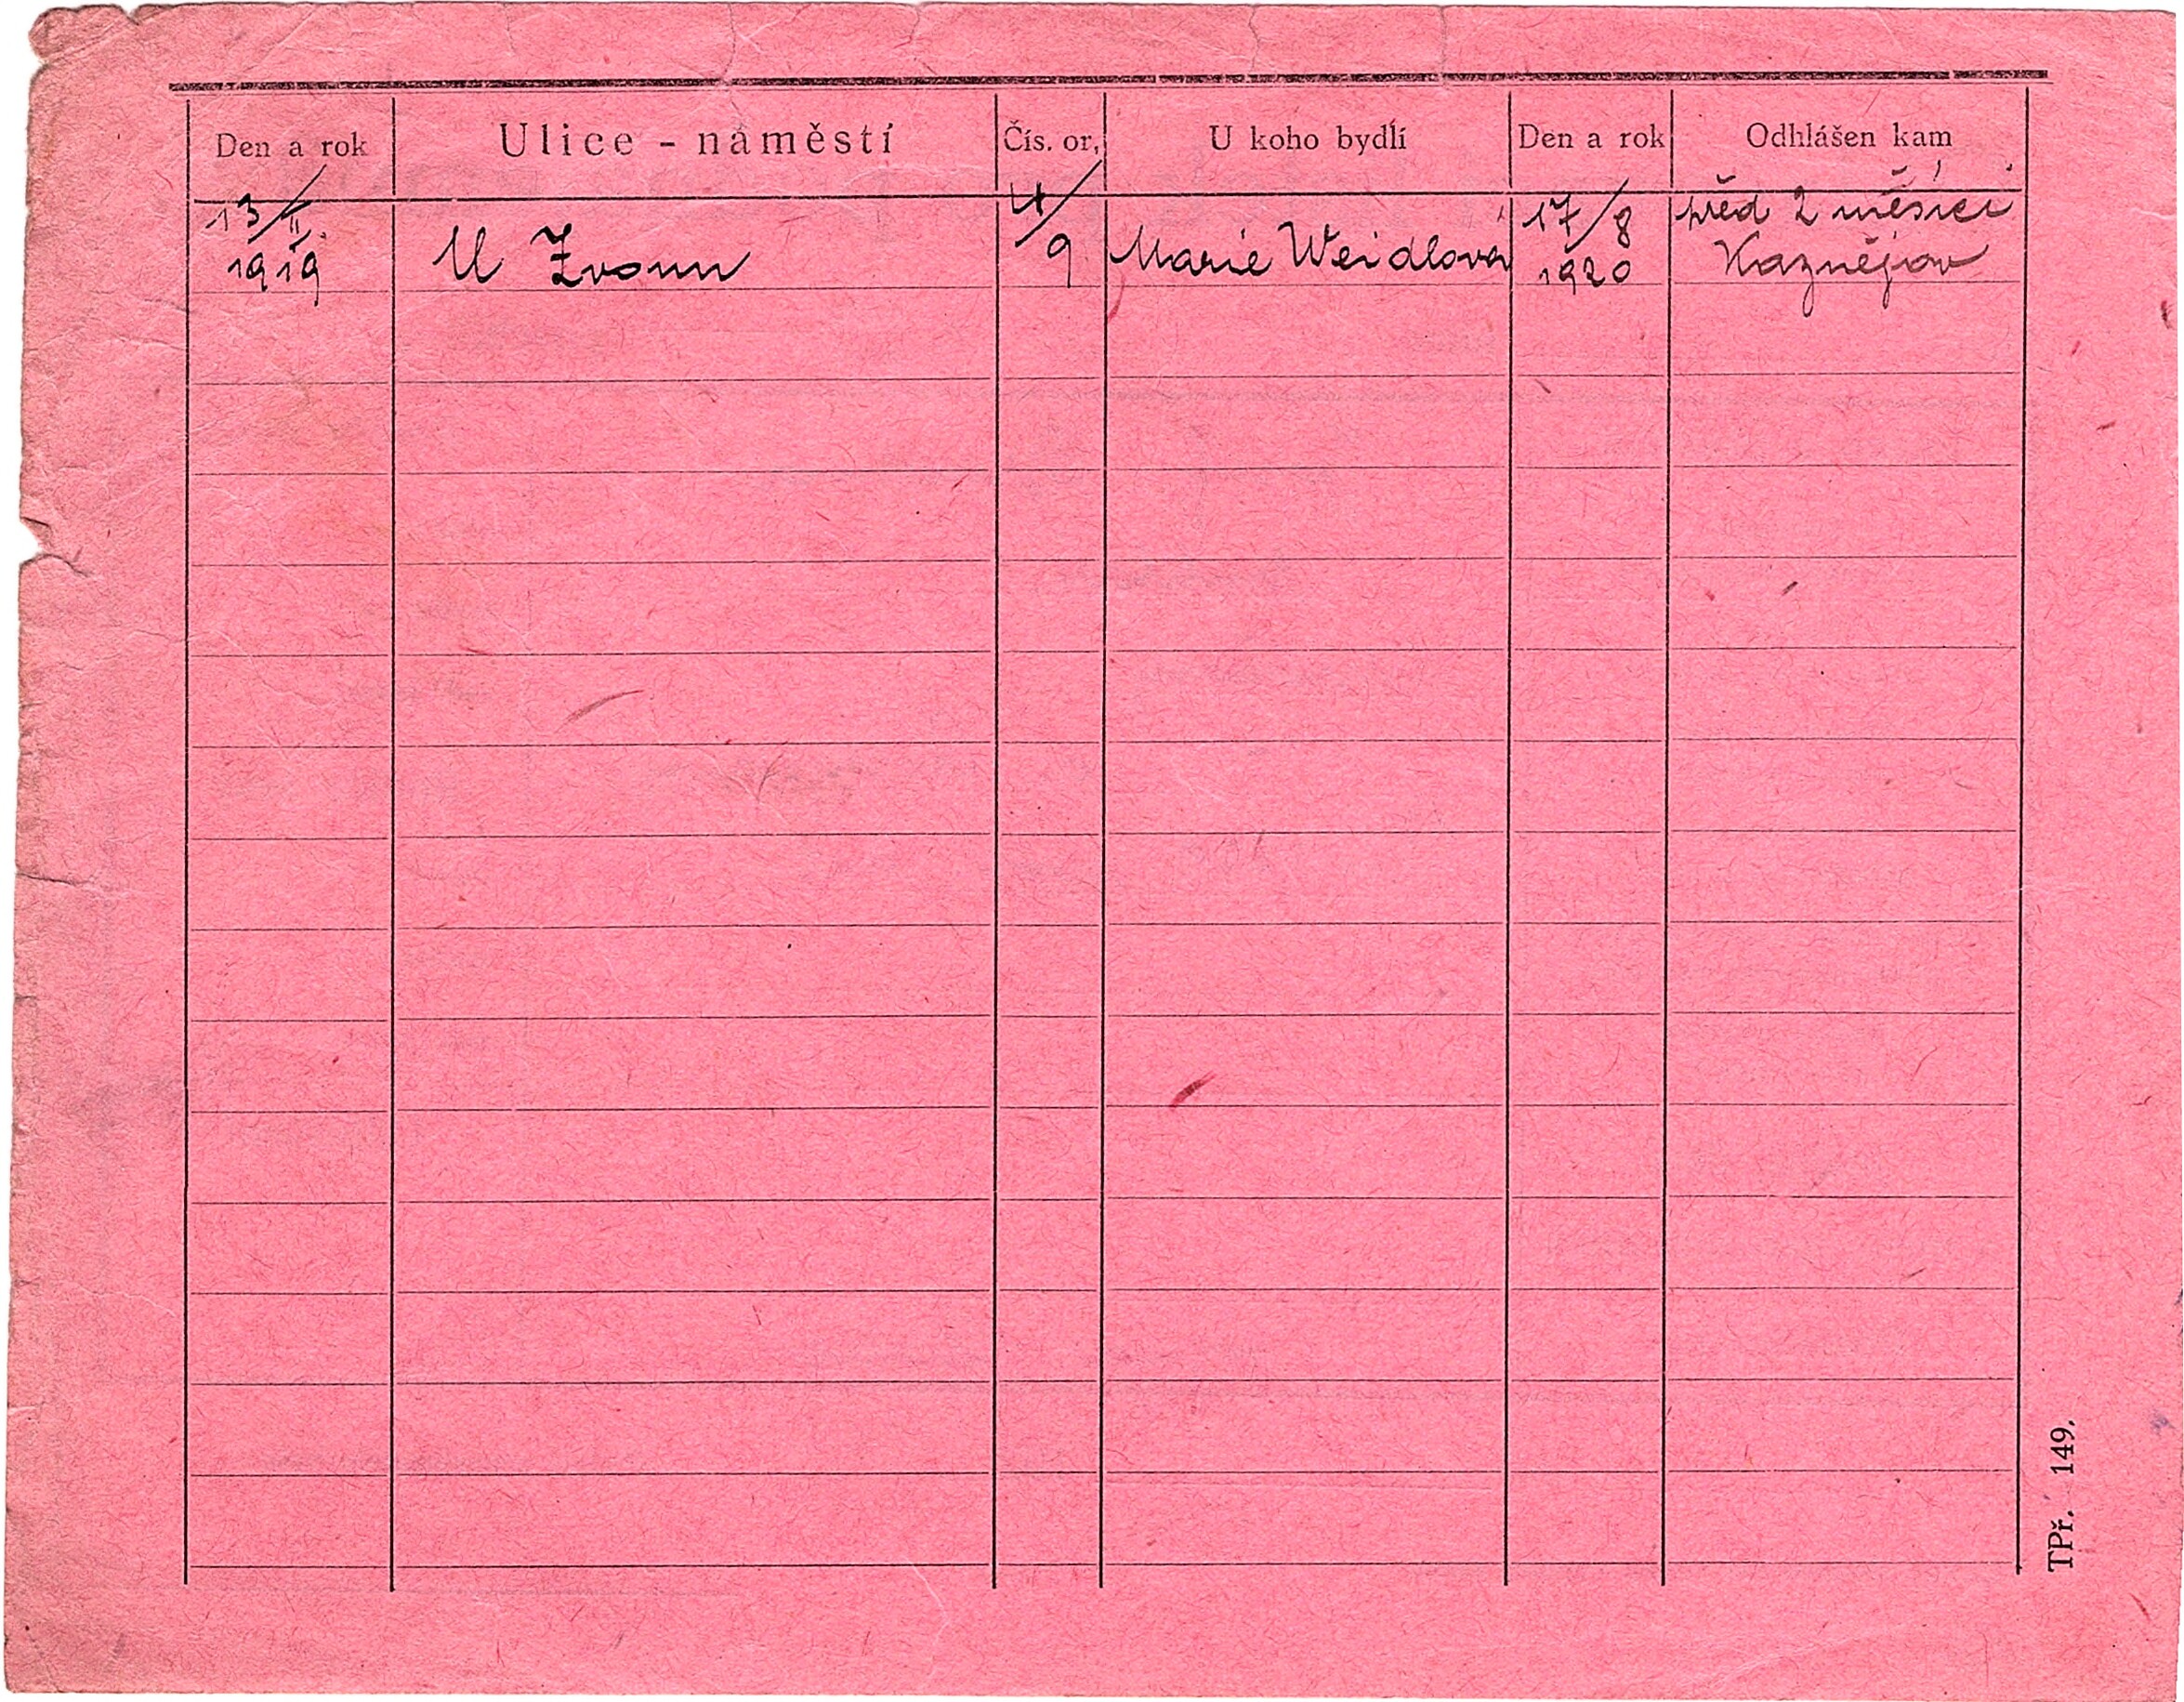 Den a rok Ulice - náměstí Čís. or. U koho bydlí Den a rok Odhlášen kam
13/II. 4/ 17/8 před 2 měsíci
1919 U Zvonu 9 Marie Weidlová 1920 Kaznějov
TPř. 149.